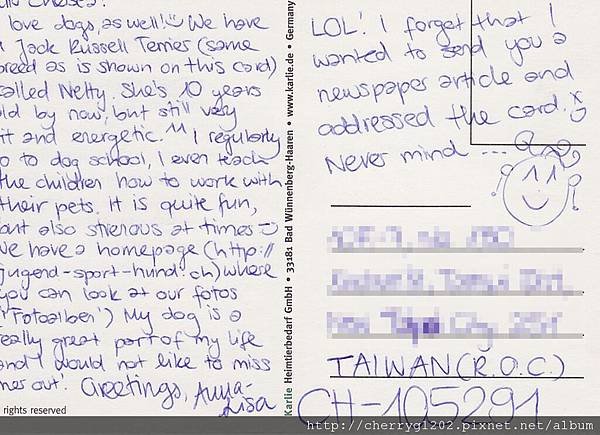 love dogs, as well! We have
a Jack Russell Terrier (same
breed as is shown on this card)
called Nelly. She's 10 years
old by now, but still very
fit and energetic. ^^ I regularly
go to dog school, I even teach
the children how to work with
their pets. It is quite fun,
but also strenous at times
We have a homepage (http://
jugend-sport-hund.ch) where
you can look at our fotos
('Fotoalben') My dog is a
really great part of my life
and I would not like to miss
her out! Greetings, Anna-
Lisa
rights reserved
Karlie Heimtierbedarf GmbH • 33181 Bad Wünnenberg-Haaren • www.karlie.de • Germany
LOL! I forget that I
wanted to send you a
newspaper article and
addressed the card.
Never mind ---
TAIWAN (R.O.C.)
CH-105291
http://cherryg1202.pixnet.net/album